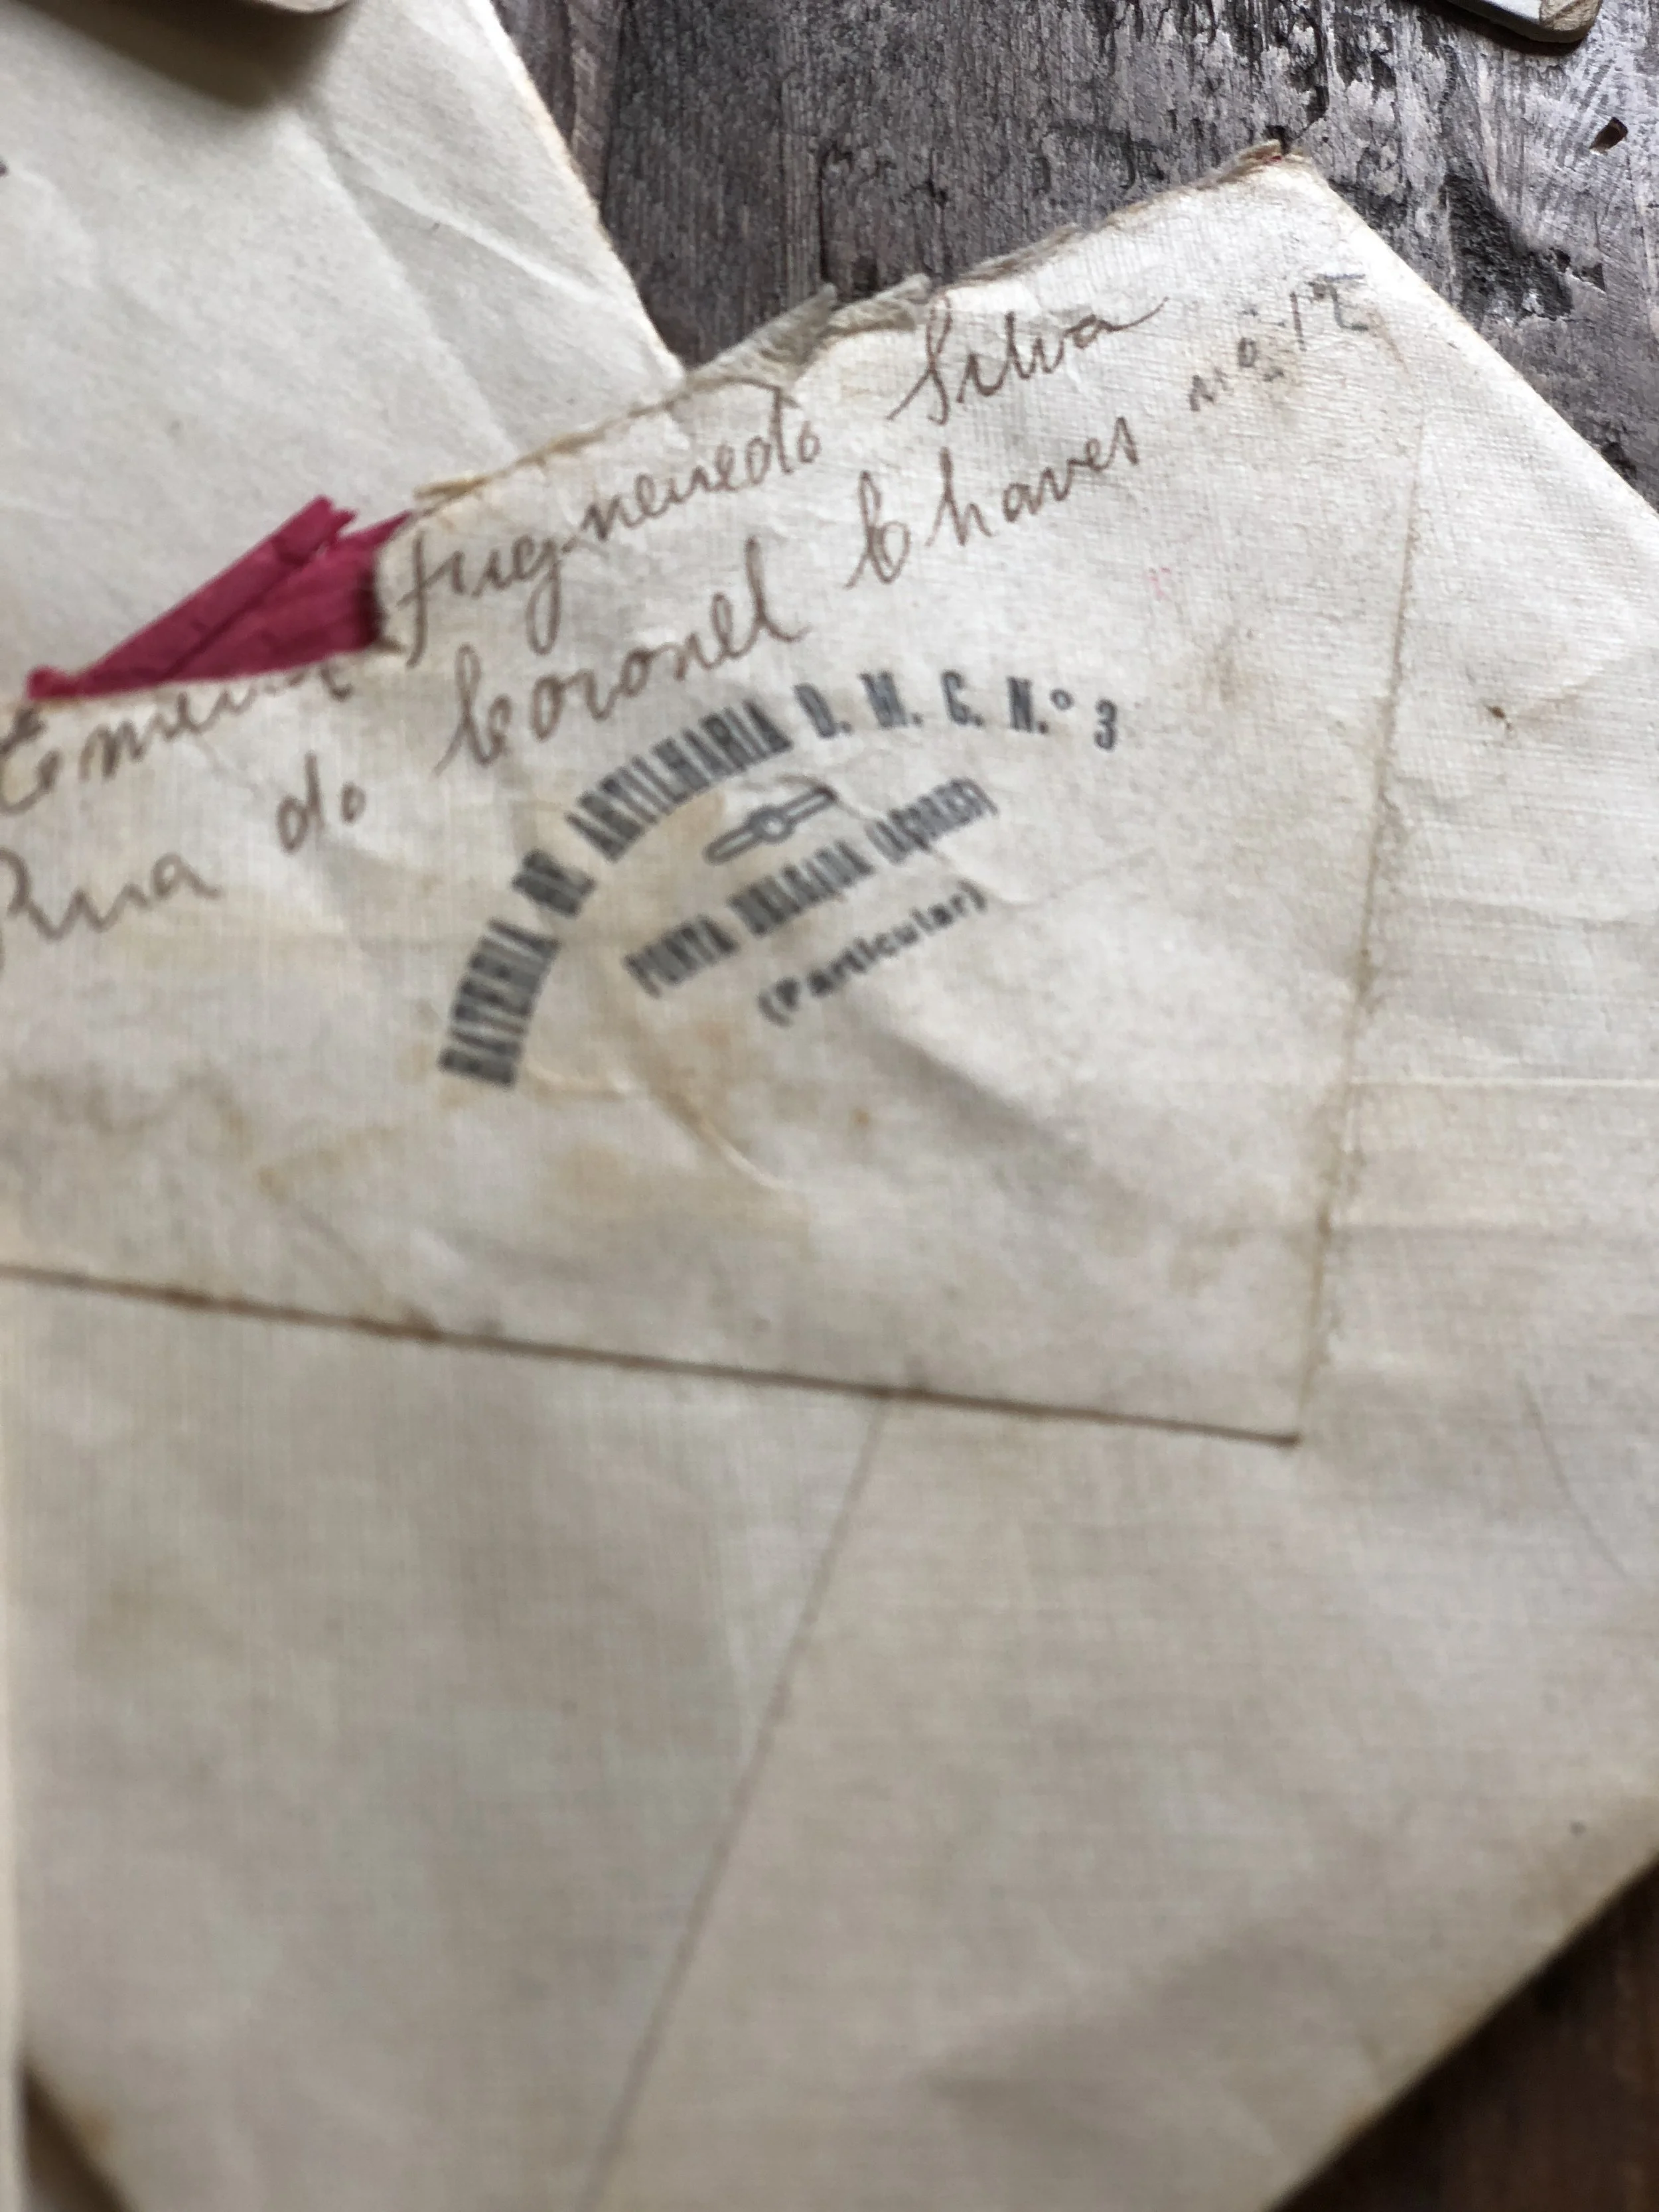 Silva
Rua do Coronel Chaves nº 12
BATERIA DE ARTILHARIA D. M. C. N.º 3
PONTA DELGADA (AÇORES)
(Particular)